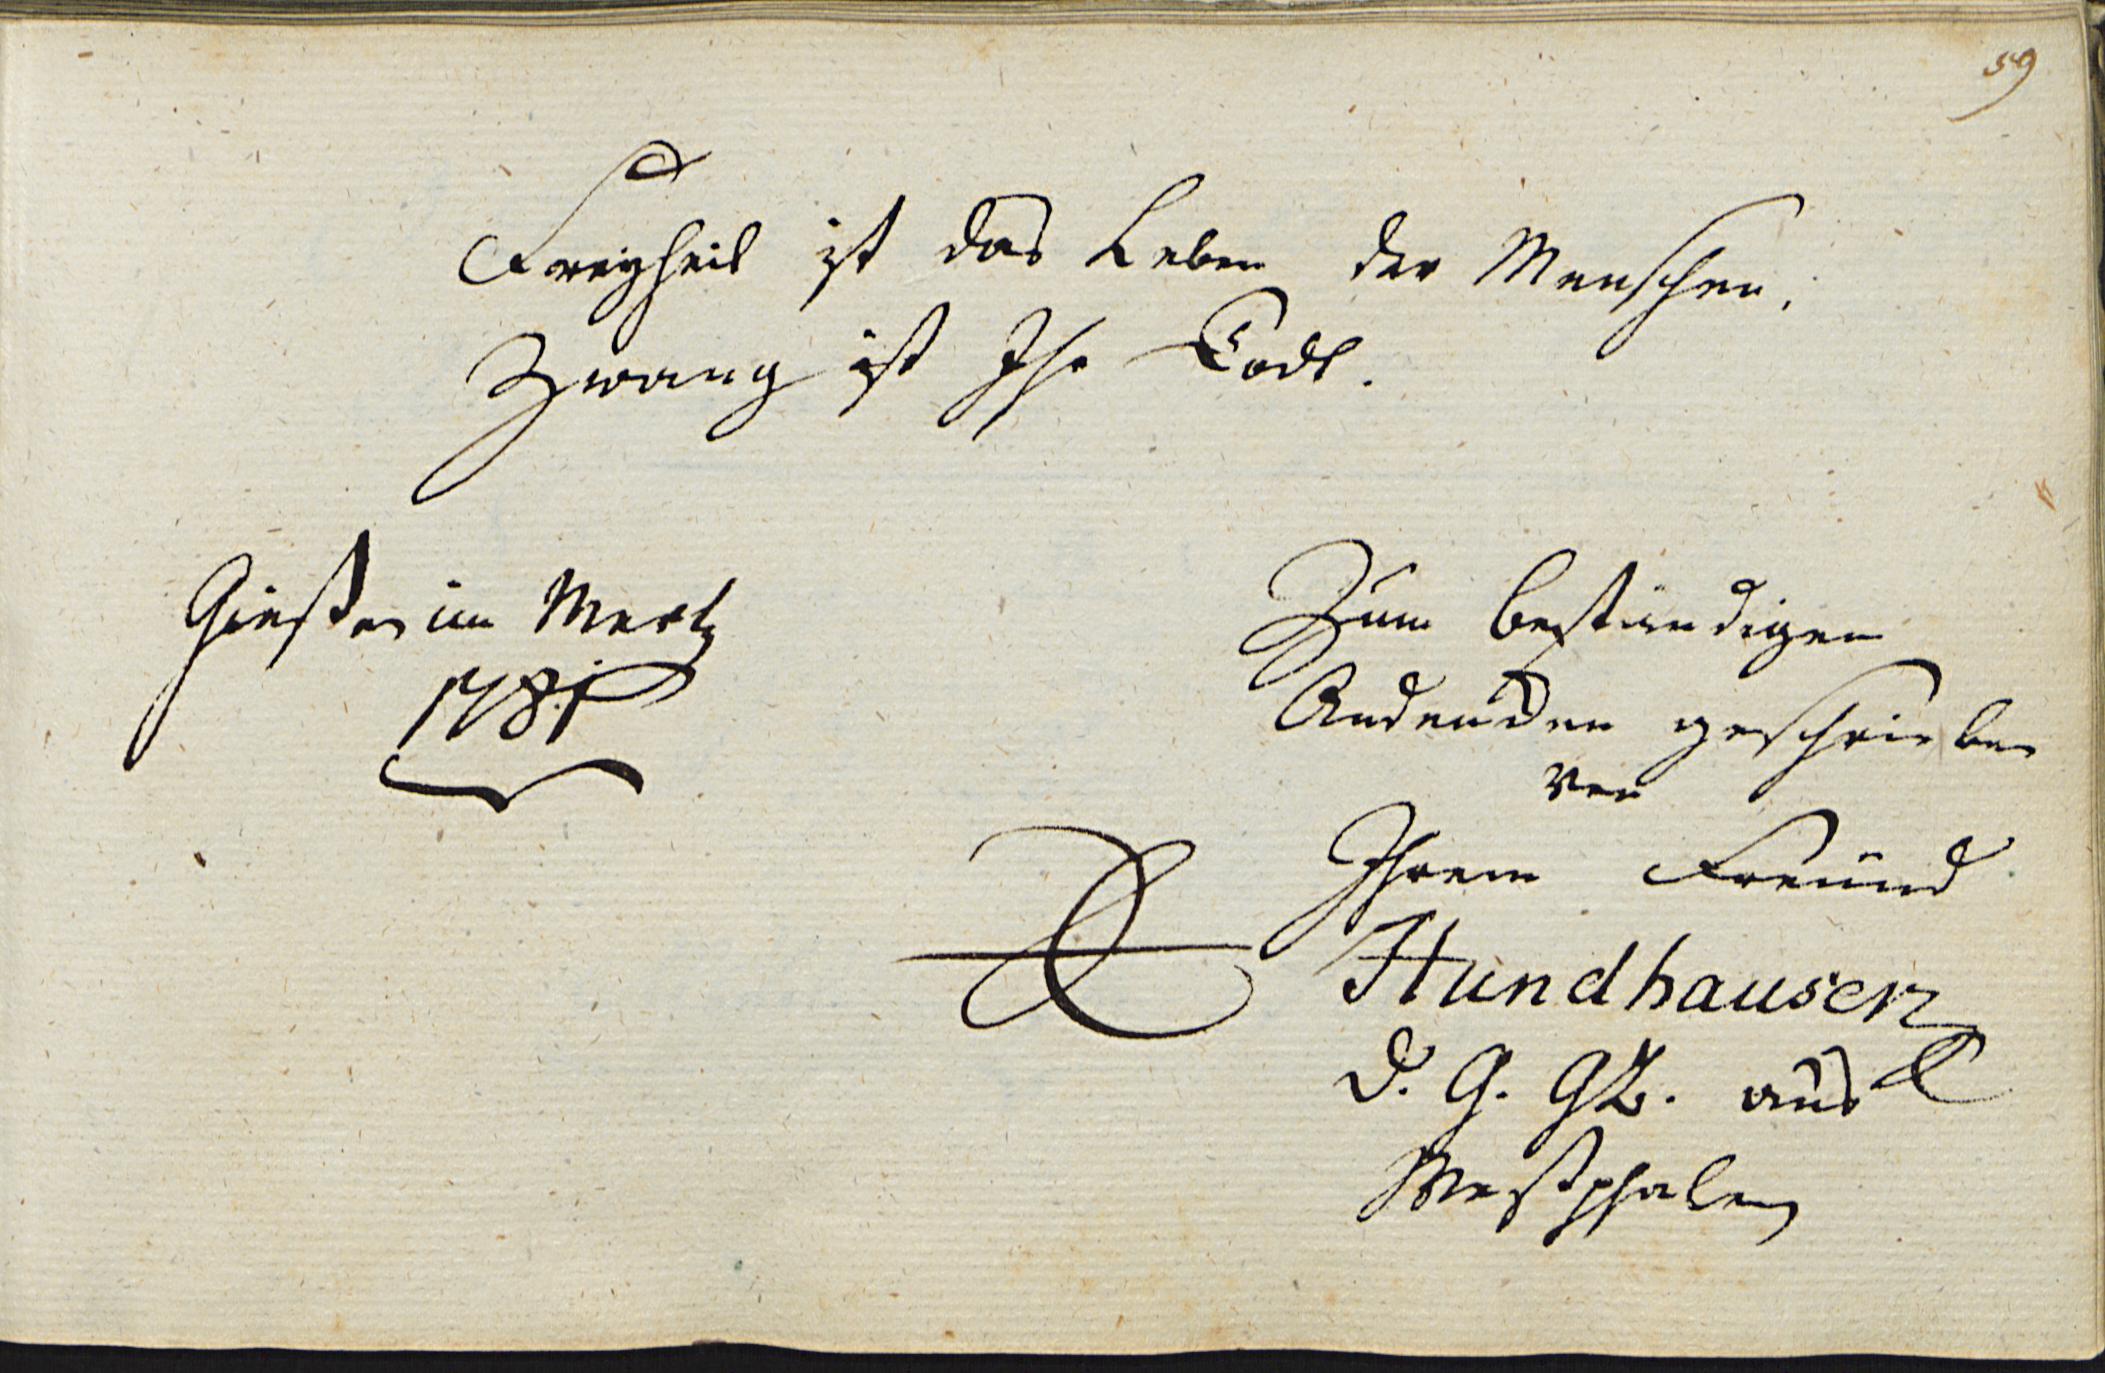 59
Freyheit ist das Leben der Menschen,
Zwang ist Ihr Todt.
Giesen im Mertz
1781
Zum beständigen
Andencken geschrieben
von
Ihrem Freund
Hundhausen
d. G. G. B. aus
Westphalen